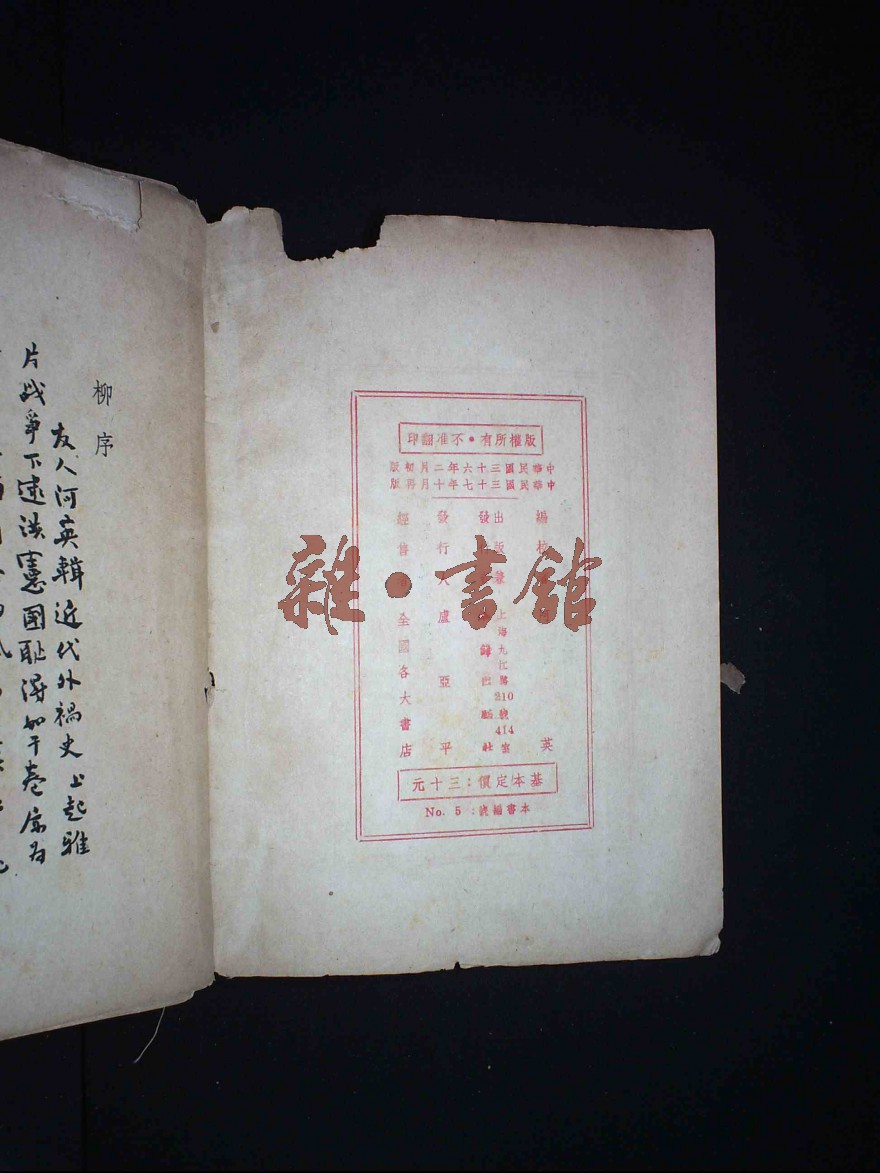 版權所有•不准翻印
中華民國三十六年二月初版
中華民國三十七年十月再版
編校 英
出版
上海九江路210號414室
發行人 盧亞平
經售 全國各大書店
基本定價:三十元
本書編號:No. 5
雜•書館
柳序
友人河英輯近代外禍史上起雅
片战爭下逮洪憲國耻得如干卷属为